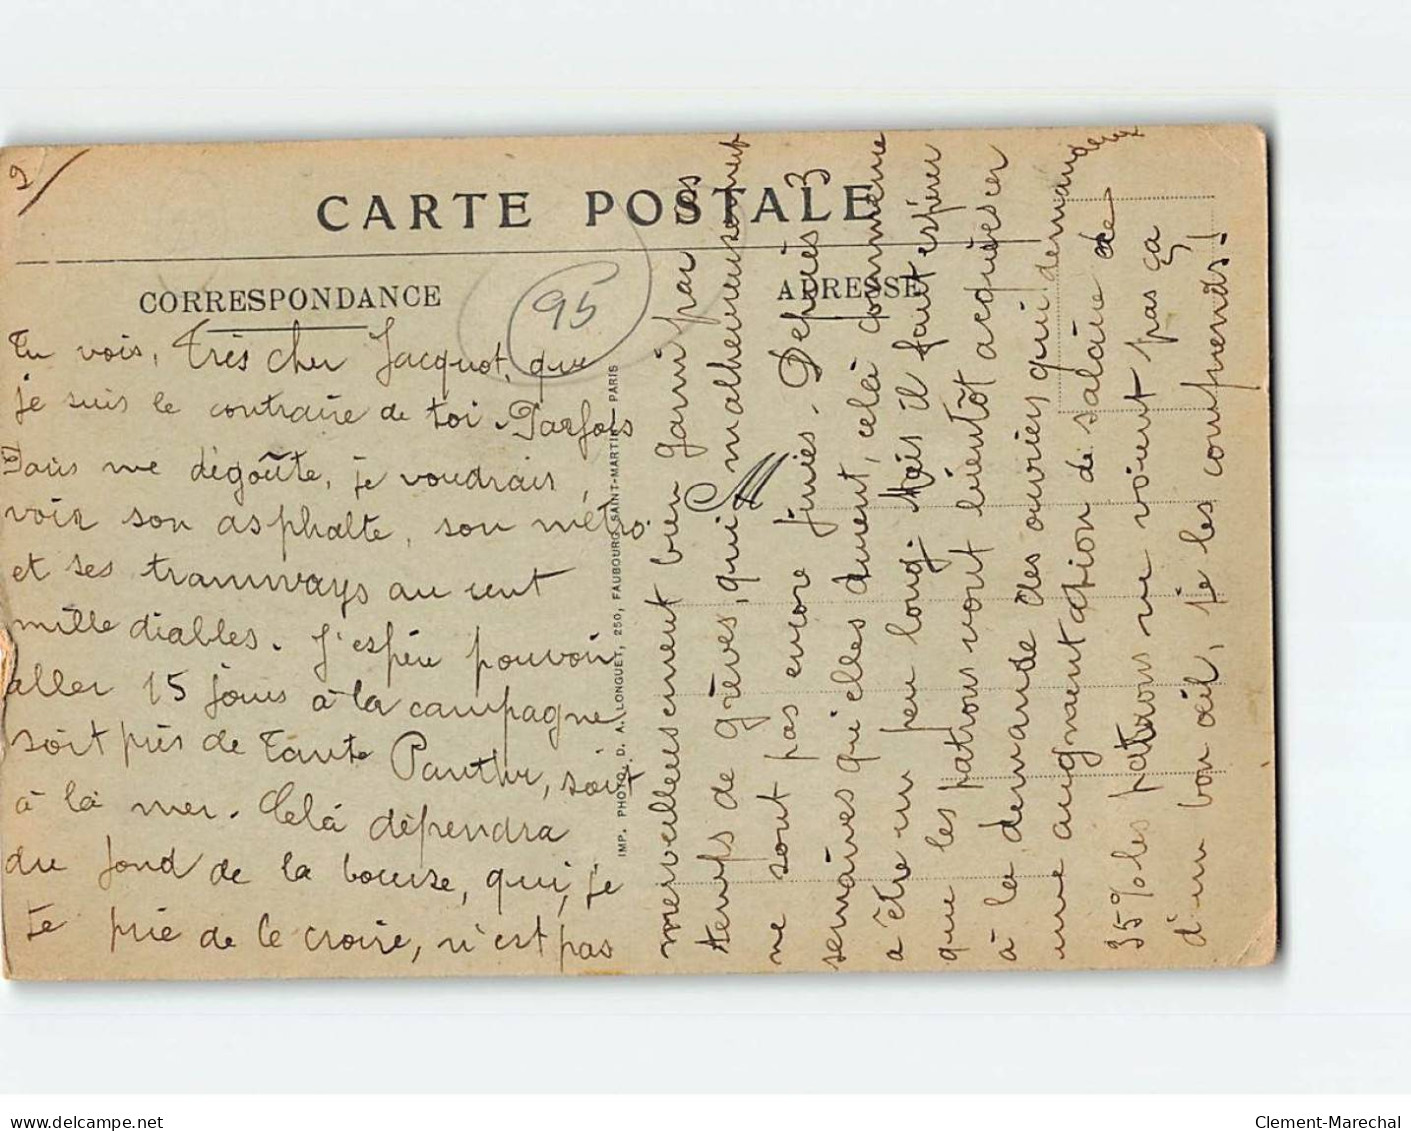 2
CARTE POSTALE
CORRESPONDANCE
ADRESSE
95
Tu vois, très cher Jacquot, que
je suis le contraire de toi. Parfois
Paris me dégoûte, je voudrais
voir son asphalte, son métro
et ses tramways au cent
mille diables. J'espère pouvoir
aller 15 jours à la campagne
soit près de Tante Panthe, soit
à la mer. Celà dépendra
du fond de la bourse, qui, je
te prie de le croire, n'est pas
IMP. PHOTO. D. A. LONGUET, 250, FAUBOURG SAINT-MARTIN PARIS
M
merveilleusement bien garni par ces
temps de grèves, qui malheureusement
ne sont pas encore finies. Depuis 3
semaines qu'elles durent, celà commence
a être un peu long. Mais il faut espérer
que les patrons vont bientôt acquiescer
à la demande des ouvriers qui demandent
une augmentation de salaire de
35% les patrons ne voient pas ça
d'un bon œil, je les comprends!
delcampe.net
Clement-Marechal